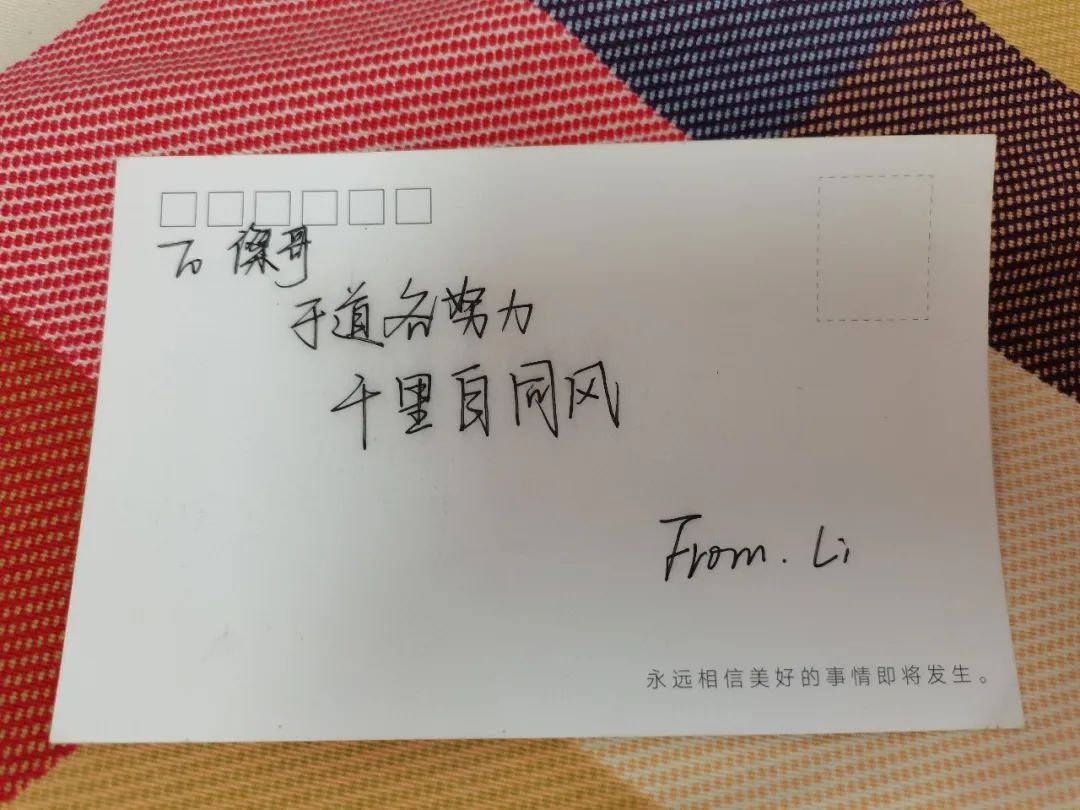 To 傑哥
于道各努力
千里自同风
From. Li
永远相信美好的事情即将发生。